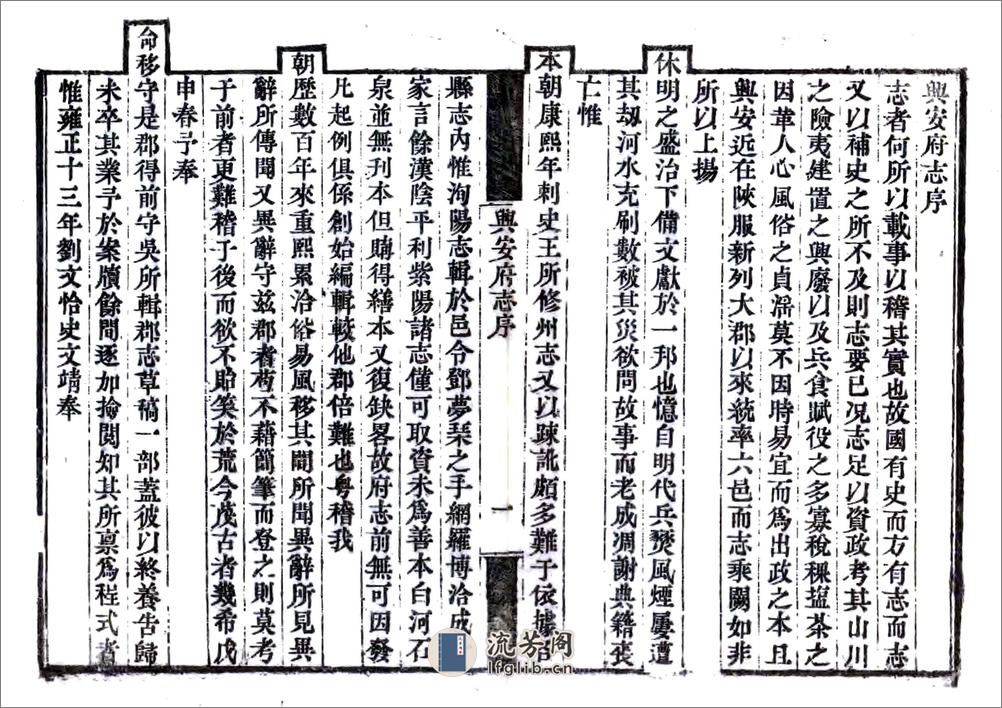 興安府志序
志者何所以載事以稽其實也故國有史而方有志而志
又以補史之所不及則志要已况志足以資政考其山川
之險夷建置之興廢以及兵食賦役之多寡稅稞塩茶之
因革人心風俗之貞淫莫不因時易宜而為出政之本且
興安近在陝服新列大郡以來統率六邑而志乘闕如非
所以上揚
休明之盛治下備文獻於一邦也憶自明代兵燹風煙屢遭
其刼河水充刷數被其災欲問故事而老成凋謝典籍喪
亡惟
本朝康熙年刺史王所修州志又以踈訛頗多難于依據
興安府志序
一
縣志內惟洵陽志輯於邑令鄧夢琴之手網羅博洽成一
家言餘漢陰平利紫陽諸志僅可取資未為善本白河石
泉並無刊本但購得繕本又復缺畧故府志前無可因發
凡起例俱係創始編輯較他郡倍難也粵稽我
朝歷數百年來重熙累洽俗易風移其間所聞異辭所見異
辭所傳聞又異辭守茲郡者苟不藉簡筆而登之則莫考
于前者更難稽于後而欲不貽笑於荒今茂古者幾希戊
申春予奉
命移守是郡得前守吳所輯郡志草稿一部蓋彼以終養告歸
未卒其業予於案牘餘間逐加披閱知其所禀為程式者
惟雍正十三年劉文恪史文靖奉
流芳阁
lfglib.cn